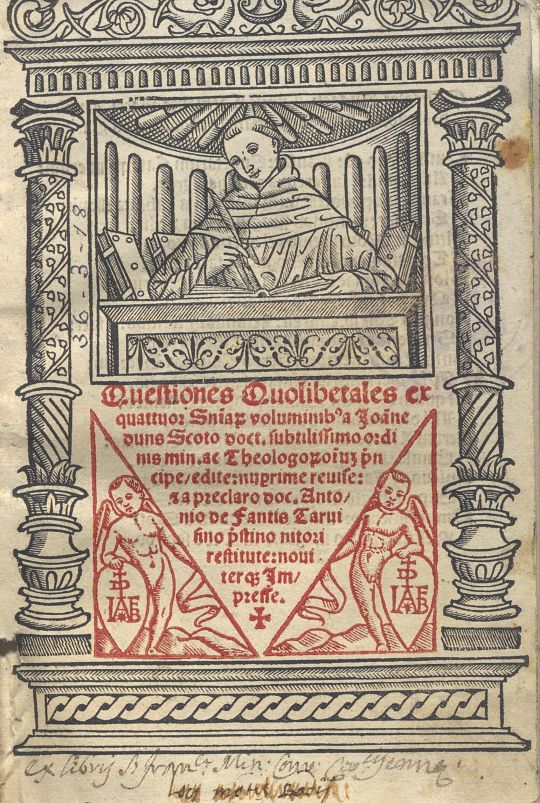 36-3-18
Questiones Quolibetales ex
quattuor Sniaꝝ voluminibꝰ a Joãne
duns Scoto doct. subtilissimo ordi
nis min. ac Theologoꝝ oiuꝫ p̃n
cipe/edite: nuprime revise:
⁊ a preclaro doc. Anto/
nio de Fantis Tarui
sino p̃stino nitori
restitute: noui
terqꝫ Im/
presse.
✠
IAFB
IAFB
ex libris S. franci Min: Con: